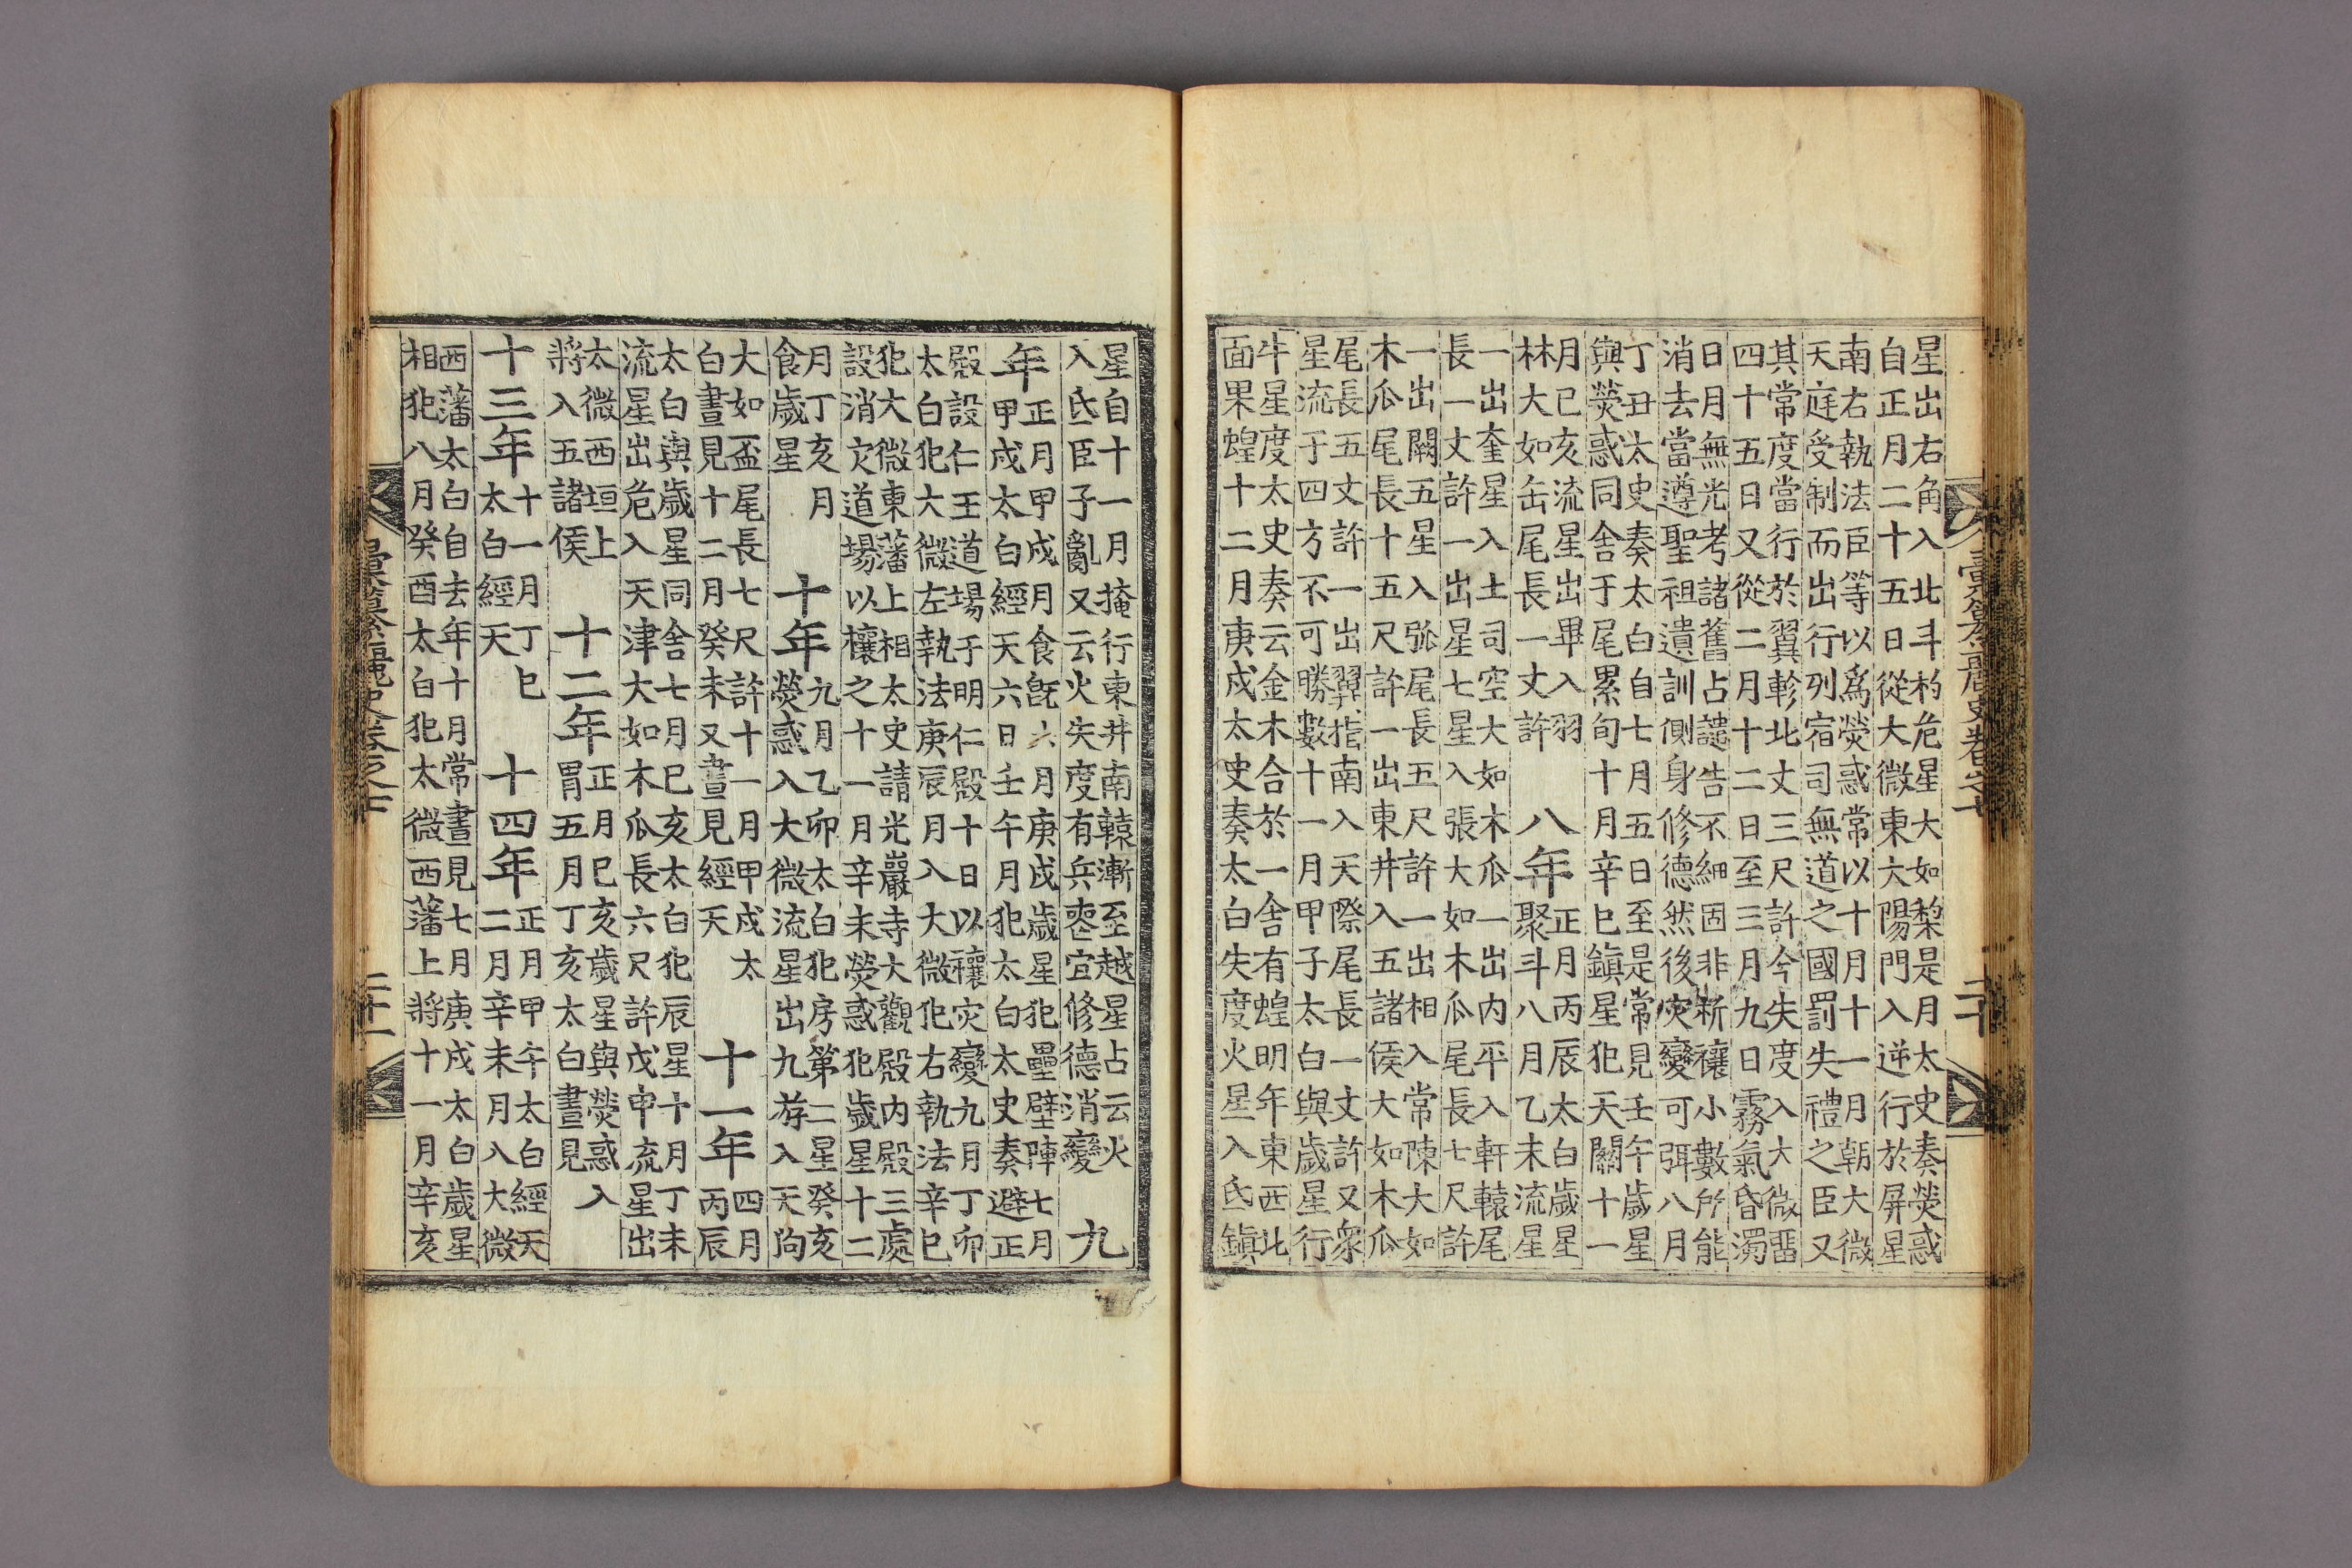 星出右角入北斗杓危星大如梨是月太史奏熒惑
自正月二十五日從大微東大陽門入逆行於屏星
南右執法臣等以爲熒惑常以十月十一月朝大微
天庭受制而出行列宿司無道之國罰失禮之臣又
其常度當行於翼軫北丈三尺許今失度入大微畱
四十五日又從二月十二日至三月九日霧氣昏濁
日月無光考諸舊占譴告不細固非新禳小數所能
消去當遵聖祖遺訓側身修德然後灾變可弭八月
丁丑太史奏太白自七月五日至是常見壬午歲星
與熒惑同舍于尾累旬十月辛巳鎮星犯天關十一
月己亥流星出畢入羽
林大如缶尾長一丈許
八年
正月丙辰太白歲星
聚斗八月乙未流星
一出奎星入土司空大如木瓜一出內平入軒轅尾
長一丈許一出星七星入張大如木瓜尾長七尺許
一出闕五星入張尾長五尺許一出相入常陳大如
木瓜尾長十五尺許一出東井入五諸侯大如木瓜
尾長五丈許一出翼指南入天際尾長一丈許又衆
星流于四方不可勝數十一月甲子太白與歲星行
牛星度太史奏云金木合於一舍有蝗明年東西北
面果蝗十二月庚戌太史奏太白失度火星入氐鎮
二十
星自十一月掩行東井南轅漸至越星占云火
入氐臣子亂又云火失度有兵喪宜修德消變
九
年
正月甲戌月食旣六月庚戌歲星犯壘壁陣七月
甲戌太白經天六日壬午月犯太白太史奏避正
殿設仁王道場于明仁殿十日以禳灾變九月丁卯
太白犯大微左執法庚辰月入大微犯右執法辛巳
犯大微東藩上相太史請光巖寺大觀殿內殿三處
設消灾道場以禳之十一月辛未熒惑犯歲星十二
月丁亥月
食歲星
十年
九月乙卯太白犯房第二星癸亥
熒惑入大微流星出九斿入天
大如盃尾長七尺許十一月甲戌太
白晝見十二月癸未又晝見經天
十一年
四月
丙辰
太白與歲星同舍七月己亥太白犯辰星十月丁未
流星出危入天津大如木瓜長六尺許戊申流星出
太微西垣上
將入五諸侯
十二年
正月己亥歲星與熒惑入
胃五月丁亥太白晝見
十三年
十一月丁巳
太白經天
十四年
正月甲午太白經天
二月辛未月入大微
西藩太白自去年十月常晝見七月庚戌太白歲星
相犯八月癸酉太白犯太微西藩上將十一月辛亥
彙纂麗史卷之十
二十一